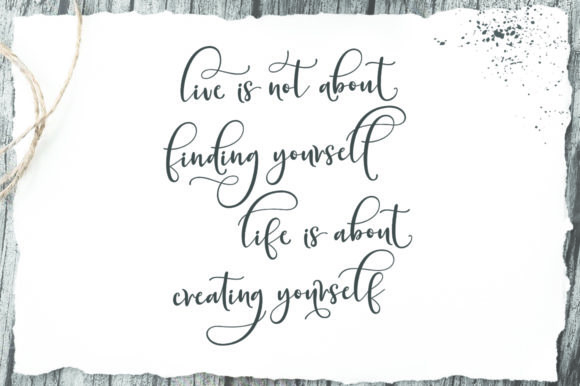 live is not about
finding yourself
life is about
creating yourself